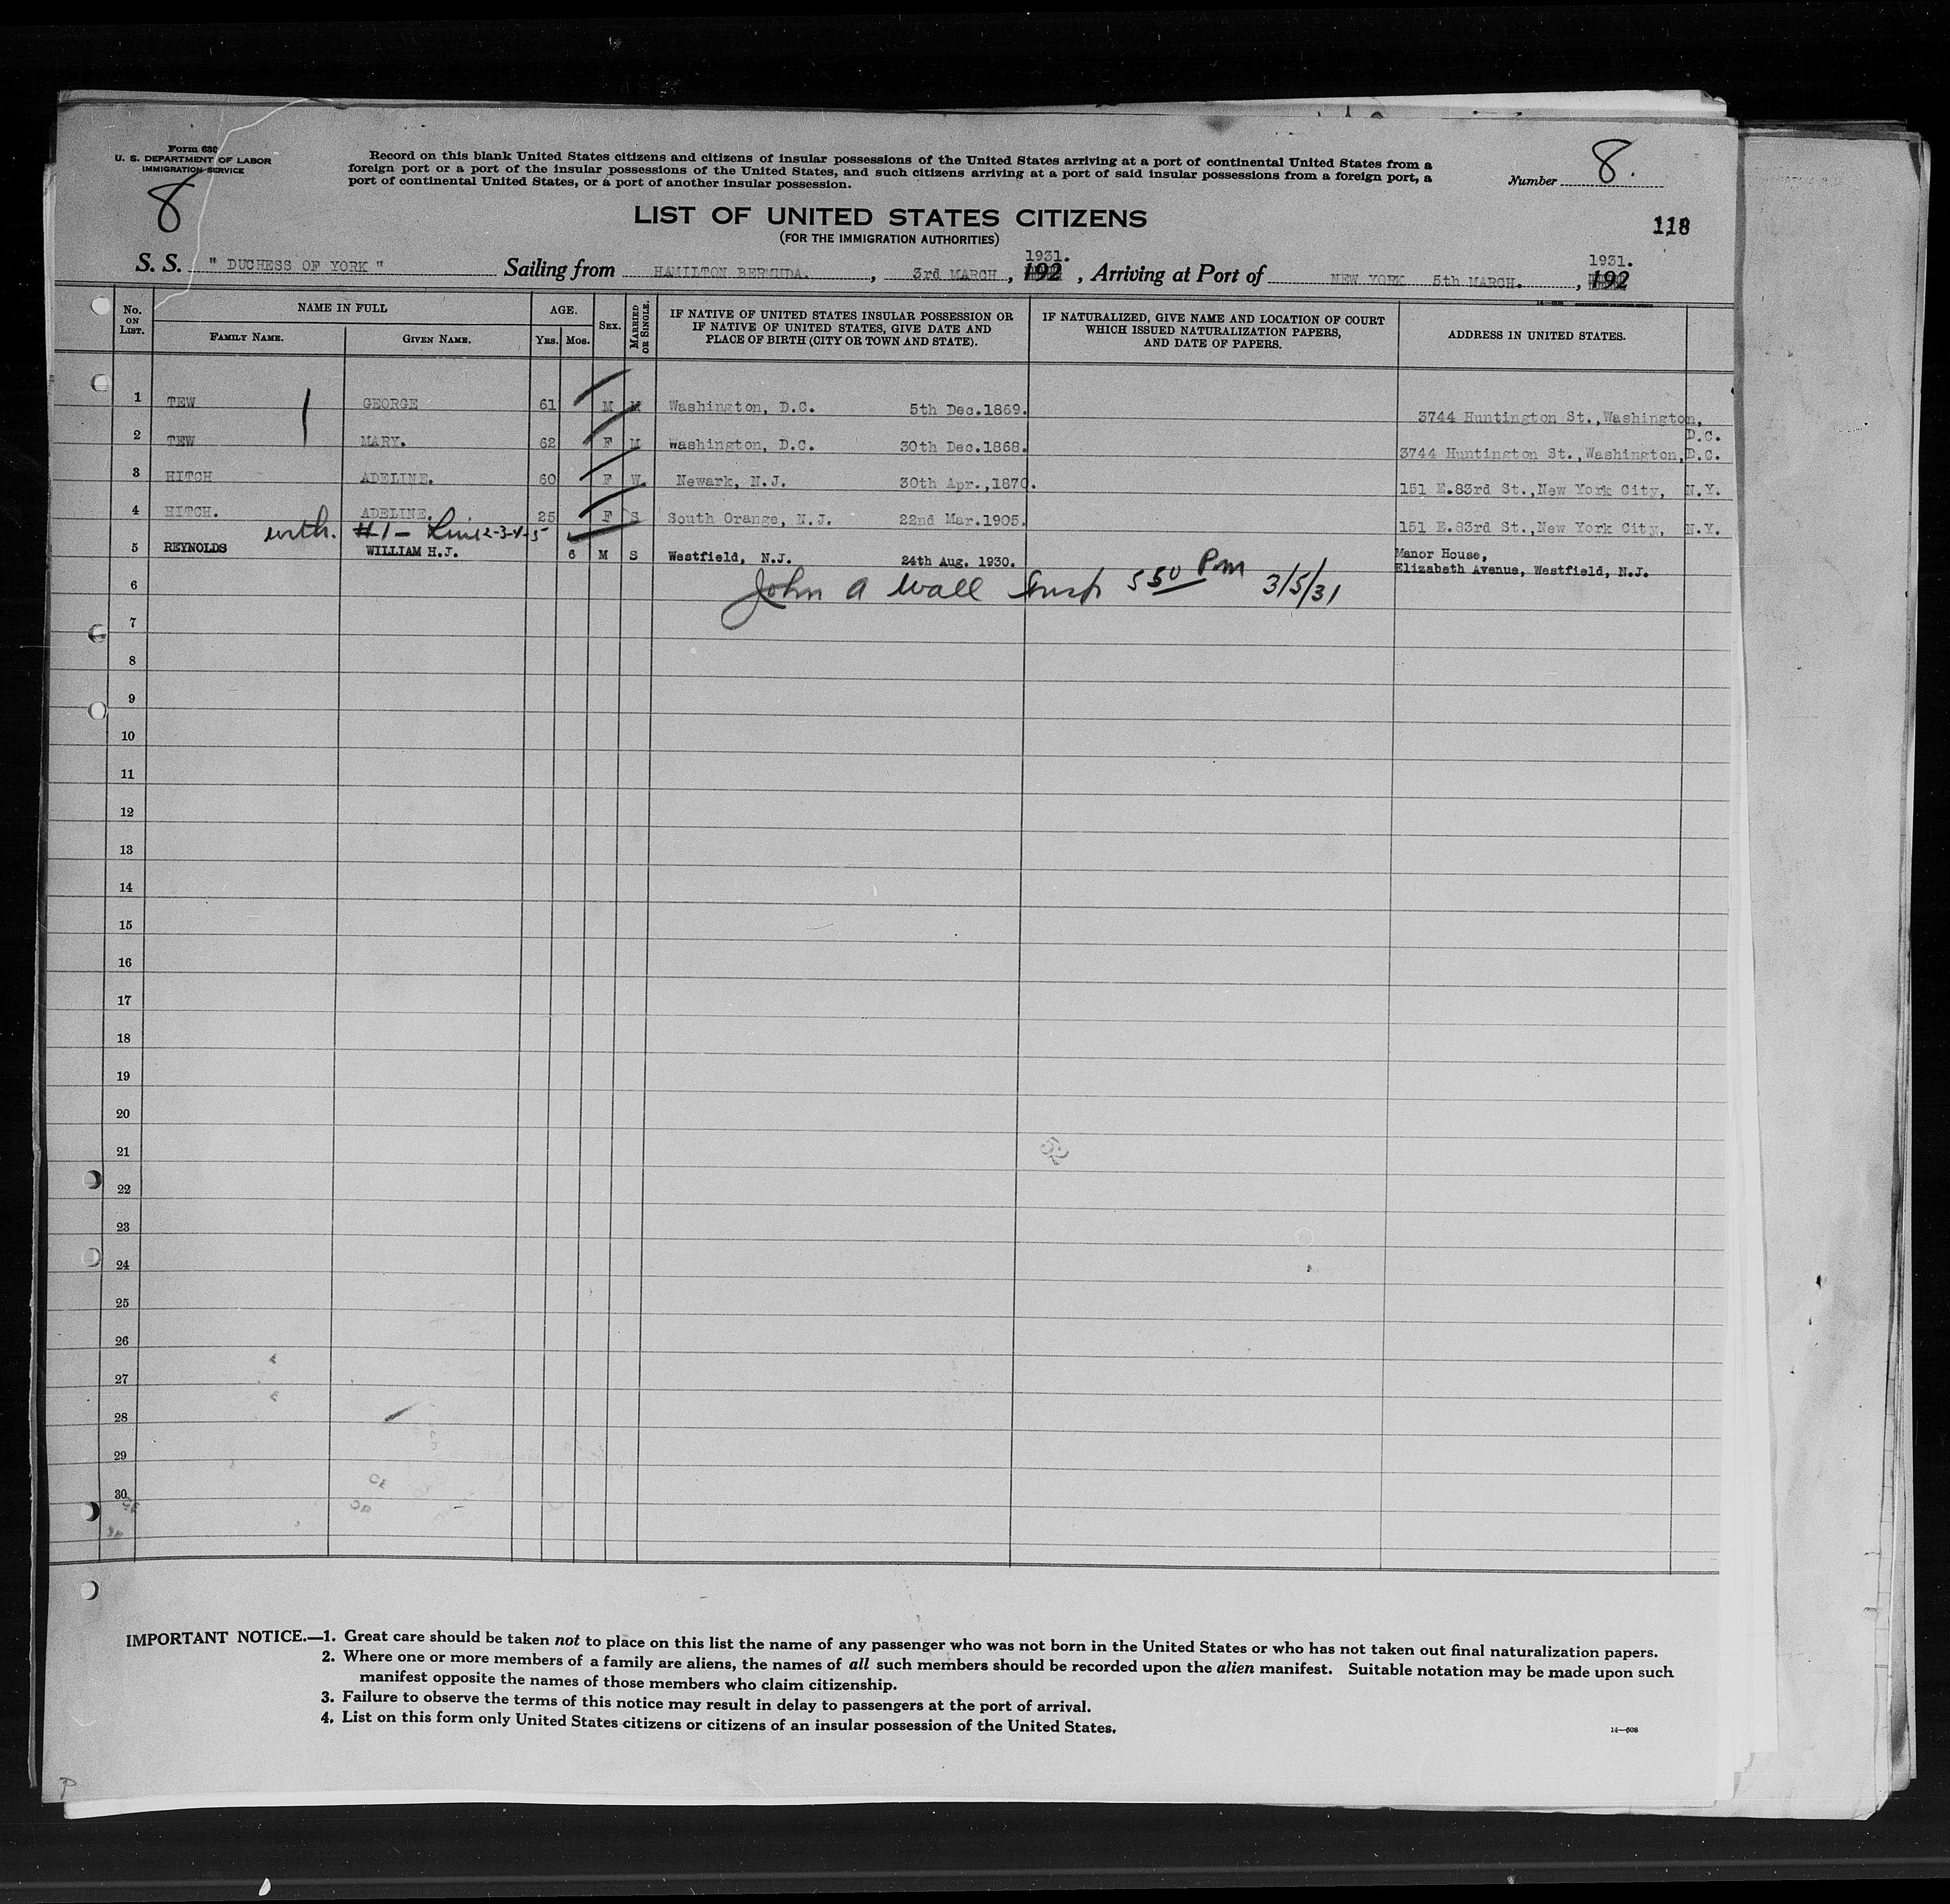 Form 630
U. S. DEPARTMENT OF LABOR
IMMIGRATION SERVICE
8
Record on this blank United States citizens and citizens of insular possessions of the United States arriving at a port of continental United States from a
foreign port or a port of the insular possessions of the United States, and such citizens arriving at a port of said insular possessions from a foreign port, a
port of continental United States, or a port of another insular possession.
Number 8.
LIST OF UNITED STATES CITIZENS
(FOR THE IMMIGRATION AUTHORITIES)
118
S. S. " DUCHESS OF YORK " Sailing from HAMILTON BERMUDA. , 3rd MARCH , 192 1931. , Arriving at Port of NEW YORK 5th MARCH. , 192 1931.
No. ON LIST. NAME IN FULL FAMILY NAME. GIVEN NAME. AGE. YRS. MOS. SEX. MARRIED OR SINGLE. IF NATIVE OF UNITED STATES INSULAR POSSESSION OR IF NATIVE OF UNITED STATES, GIVE DATE AND PLACE OF BIRTH (CITY OR TOWN AND STATE). IF NATURALIZED, GIVE NAME AND LOCATION OF COURT WHICH ISSUED NATURALIZATION PAPERS, AND DATE OF PAPERS. ADDRESS IN UNITED STATES.
1 TEW GEORGE 61 M M Washington, D.C. 5th Dec.1869. 3744 Huntington St.,Washington, D.C.
2 TEW MARY. 62 F M Washington, D.C. 30th Dec.1868. 3744 Huntington St.,Washington,D.C.
3 HITCH ADELINE. 60 F W. Newark, N.J. 30th Apr.,1870. 151 E.83rd St.,New York City, N.Y.
4 HITCH. ADELINE. 25 F S South Orange, N.J. 22nd Mar.1905. 151 E.83rd St.,New York City, N.Y.
with. #1 - Line 2-3-4-5
5 REYNOLDS WILLIAM H.J. 6 M S Westfield, N.J. 24th Aug. 1930. Manor House, Elizabeth Avenue, Westfield, N.J.
6 John A Wall Insp 5 50 Pm 3/5/31
7
8
9
10
11
12
13
14
15
16
17
18
19
20
21
22
23
24
25
26
27
28
29
30
IMPORTANT NOTICE.—1. Great care should be taken not to place on this list the name of any passenger who was not born in the United States or who has not taken out final naturalization papers.
2. Where one or more members of a family are aliens, the names of all such members should be recorded upon the alien manifest. Suitable notation may be made upon such
manifest opposite the names of those members who claim citizenship.
3. Failure to observe the terms of this notice may result in delay to passengers at the port of arrival.
4. List on this form only United States citizens or citizens of an insular possession of the United States.
14—608